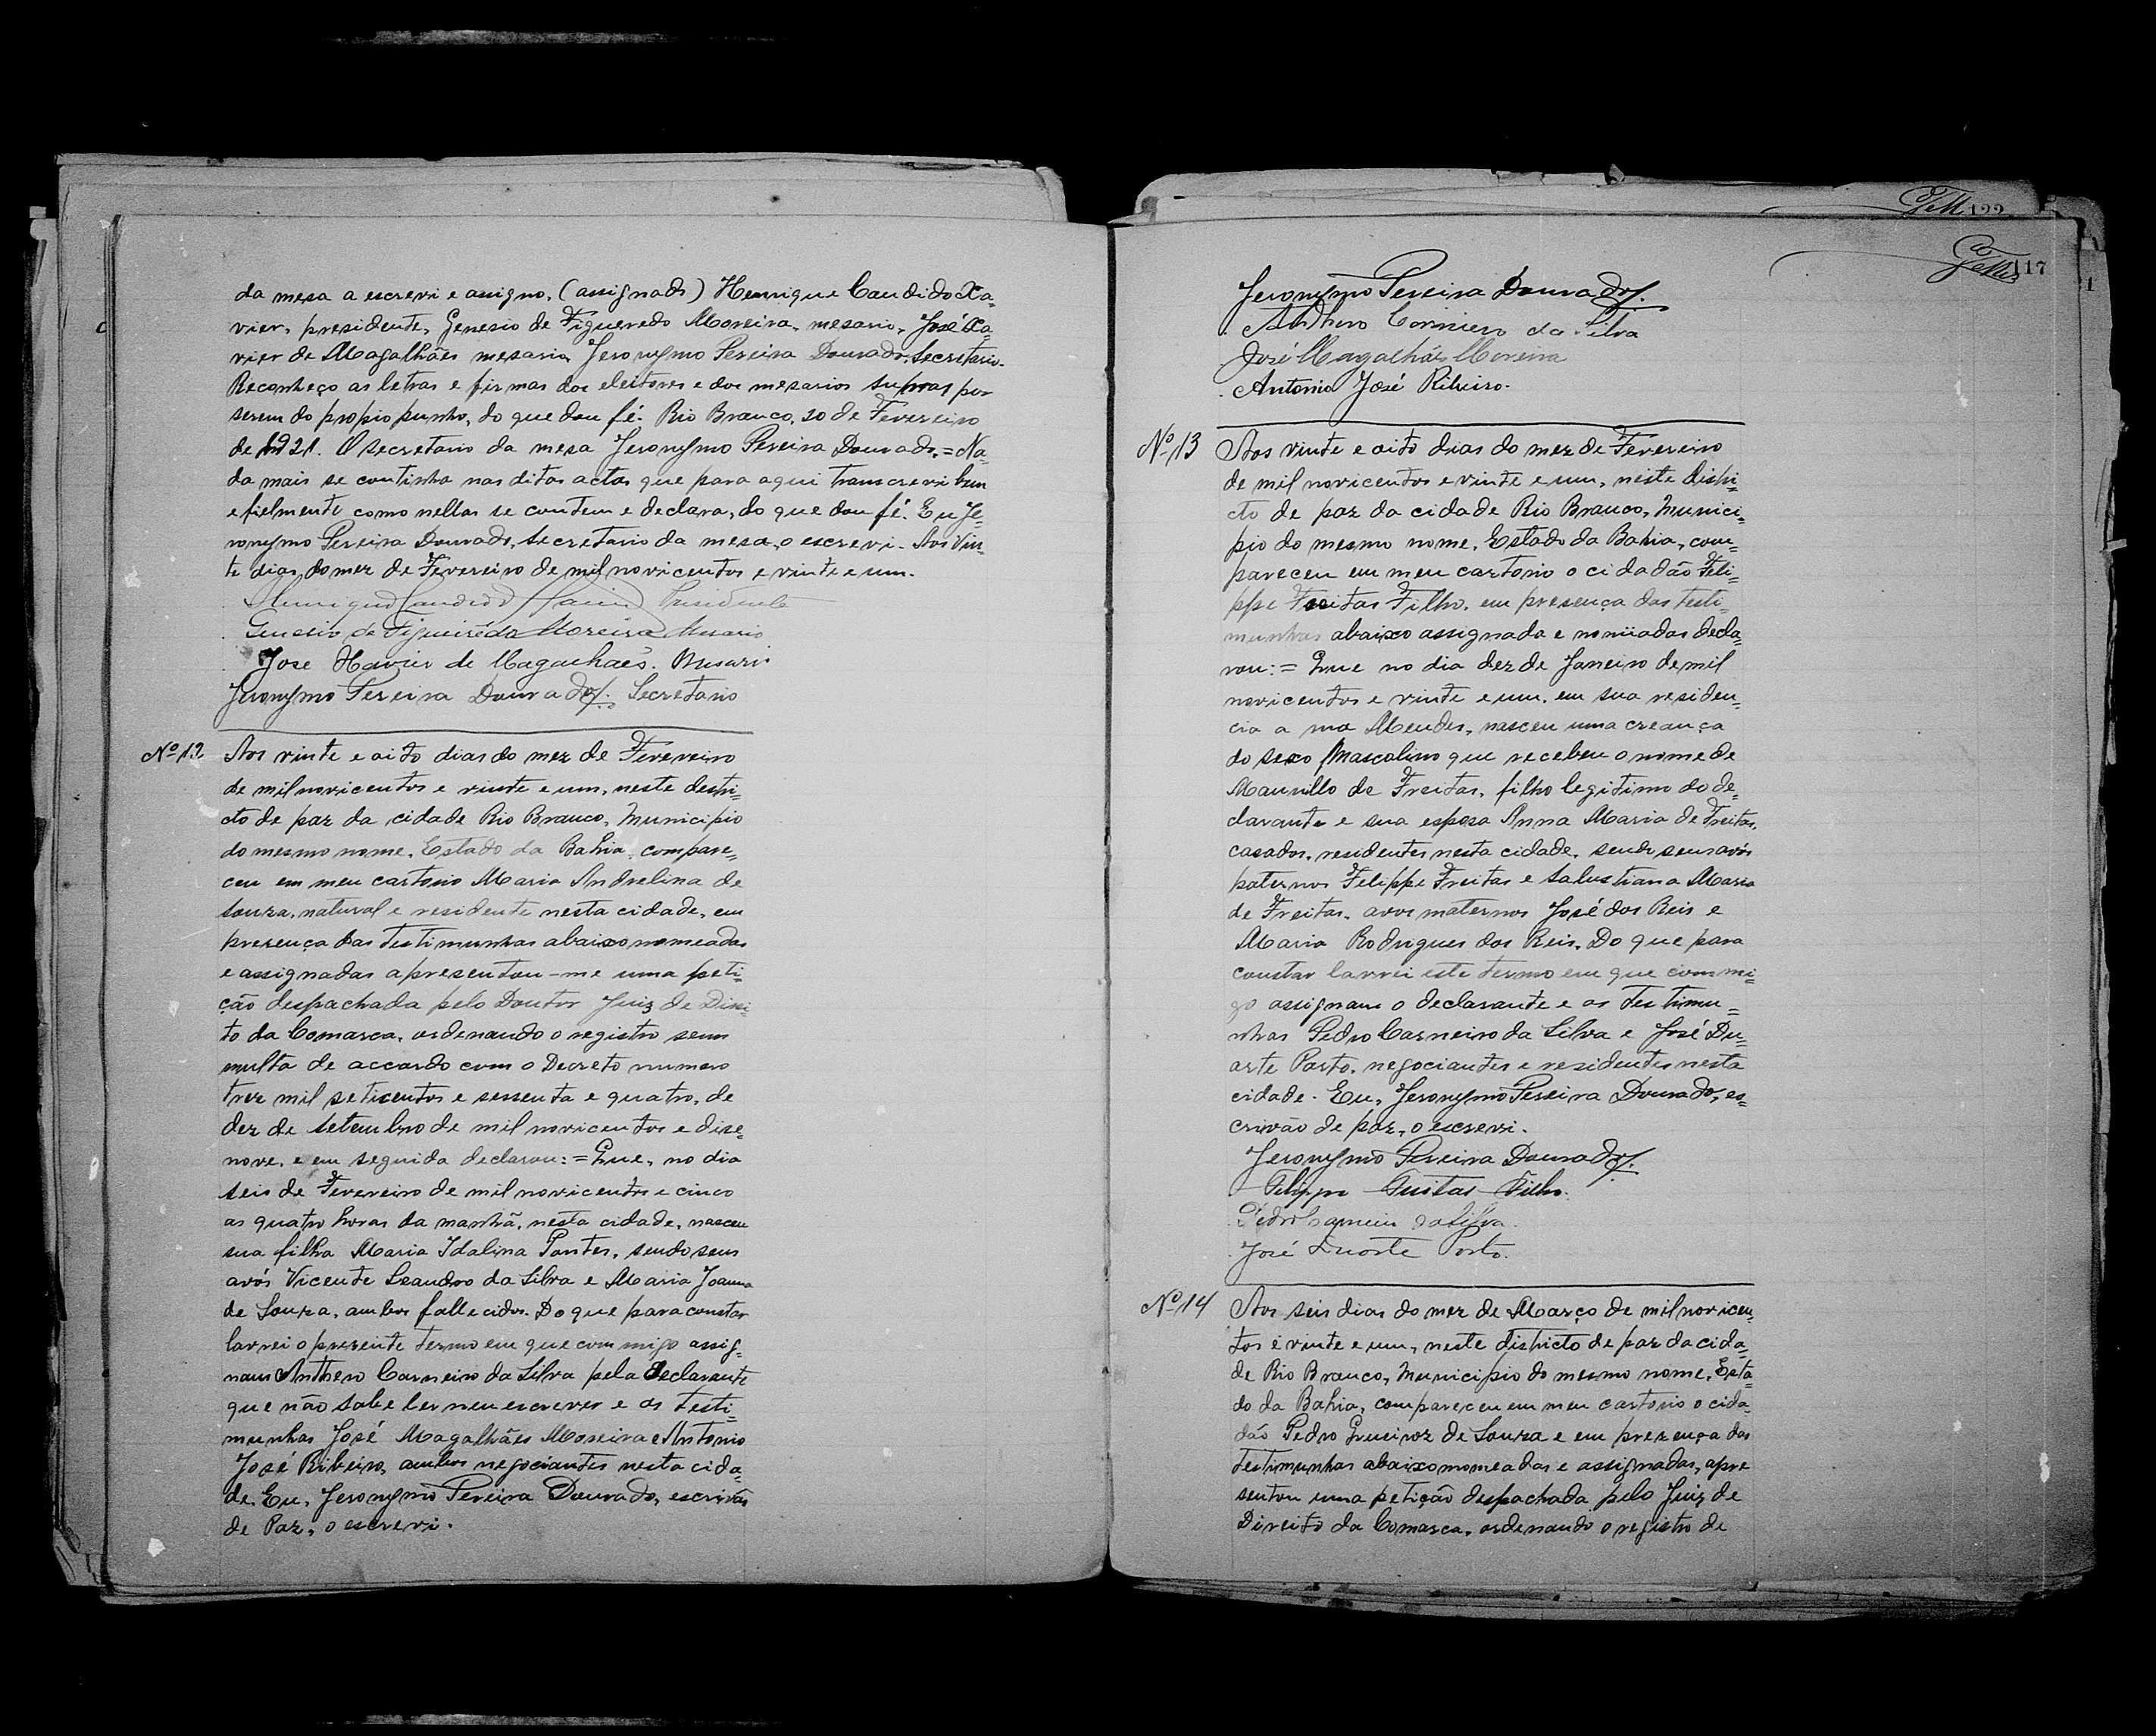 da mesa a escrevi e assigno. (assignado) Henrique Candido Xa=
vier, presidente, Genesio de Figueredo Moreira, mesario, José Xa=
vier de Magalhães mesario, Jeronymo Pereira Dourado, Secretario.
Reconheço as letras e firmas dos eleitores e dos mesarios supras por
serem do propio punho, do que dou fé. Rio Branco, 20 de Fevereiro
de 1921. O secretario da mesa Jeronymo Pereira Dourado. = Na=
da mais se continha nas ditas actas que para aqui transcrevi bem
e fielmente como nellas se contem e declara, do que dou fé. Eu Je=
ronymo Pereira Dourado, secretario da mesa, o escrevi. Aos vin=
te dias do mez de Fevereiro de mil novicentos e vinte e um.
Henrique Candido Xavier Presidente
Genesio de Figueirêdo Moreira Mesario
Jose Xavier de Magalhaes. Mesario
Jeronymo Pereira Dourado. Secretario
Nº 12 Aos vinte e oito dias do mez de Fevereiro
de mil novicentos e vinte e um, neste destri=
cto de paz da cidade Rio Branco, Municipio
do mesmo nome, Estado da Bahia, compare=
ceu em meu cartorio Maria Andrelina de
Souza, natural e residente nesta cidade, em
presença das testimunhas abaixo nomeadas
e assignadas apresentou-me uma peti=
ção despachada pelo Doutor Juiz de Direi=
to da Comarca, ordenando o registro sem
multa de accardo com o Decreto numero
trez mil seticentos e sessenta e quatro, de
dez de setembro de mil novicentos e dize=
nove, e em seguida declarou: = Que, no dia
seis de Fevereiro de mil novicentos e cinco
as quatro horas da manhã, nesta cidade, nasceu
sua filha Maria Idalina Pontes, sendo seus
avós Vicente Leandro da Silva e Maria Joanna
de Souza, ambos fallecidos. Do que para constar
lavrei o presente termo em que commigo assig=
nam Anthero Carneiro da Silva pela declarante
que não sabe ler nem escrever e as testi=
munhas José Magalhães Moreira e Antonio
José Ribeiro, ambos negociantes nesta cida=
de. Eu, Jeronymo Pereira Dourado, escrivão
de Paz, o escrevi.
122
117
Jeronymo Pereira Dourado.
Anthero Carneiro da Silva
José Magalhães Moreira
Antonio José Ribeiro.
Nº 13 Aos vinte e oito dias do mez de Fevereiro
de mil novicentos e vinte e um, neste distri=
cto de paz da cidade Rio Branco, Munici=
pio do mesmo nome, Estado da Bahia, com=
pareceu em meu cartorio o cidadão Feli=
ppe Freitas Filho, em presença das testi=
munhas abaixo assignada e nomiiadas decla=
rou: = Que no dia dez de Janeiro de mil
novicentos e vinte e um, em sua residen=
cia a rua Mendes, nasceu uma creança
do sexo Mascolino que recebeu o nome de
Maurillo de Freitas, filho legitimo do de=
clarante e sua esposa Anna Maria de Freitas,
casados, residentes nesta cidade, sendo seus avós
paternos Felippe Freitas e Salustiana Maria
de Freitas, avos maternos José dos Reis e
Maria Rodrigues dos Reis. Do que para
constar lavrei este termo em que commi=
go assignam o declarante e as testimu=
nhas Pedro Carneiro da Silva e José Du=
arte Porto, negociantes e residentes nesta
cidade. Eu, Jeronymo Pereira Dourado, es=
crivão de paz, o escrevi.
Jeronymo Pereira Dourado.
Felippe Freitas Filho.
Pedro Carneiro da Silva.
José Duarte Porto.
Nº 14 Aos seis dias do mez de Março de mil novicen=
tos e vinte e um, neste districto de paz da cida=
de Rio Branco, Municipio do mesmo nome, Esta=
do da Bahia, compareceu em meu cartorio o cida=
dão Pedro Queiroz de Souza e em presença das
testimunhas abaixo nomeadas e assignadas, apre
sentou uma petição despachada pelo Juiz de
Direito da Comarca, ordenando o registro de